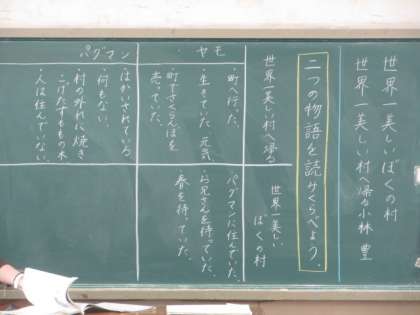 世界一美しいぼくの村
世界一美しい村へ帰る 小林 豊
二つの物語を読みくらべよう。
世界一美しい村へ帰る
世界一美しい
ぼくの村
ヤモ
・町へ行った。
・生きていた、元気
・町でさくらんぼを
売っていた。
・パグマンに住んでいた。
・お兄さんを待っていた。
・春を待っていた。
パグマン
・はかいされている。
・何もない。
・村の外れに焼き
こげたすももの木
・人は住んでいない。